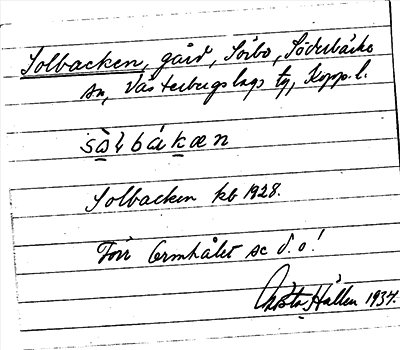 Solbacken, gård, Sörbo, Söderbärke
sn, Västerbergslags tg, Kopp. l.
sålbákæn
Solbacken kb 1928.
Förr Ormhålet se d. o!
Hällen 1937.